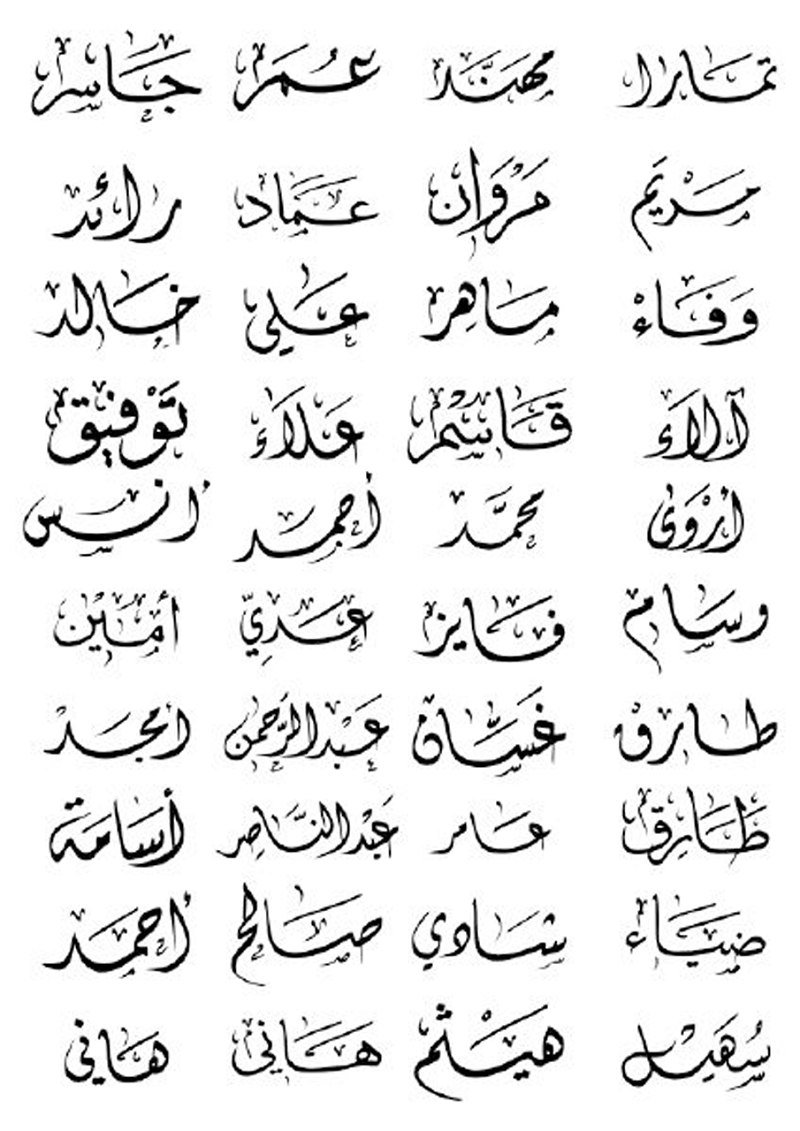 تمارا مهند عمر جاسر
مريم مروان عماد رائد
وفاء ماهر علي خالد
آلاء قاسم علاء توفيق
أروى محمد أحمد أنس
وسام فايز عدي أمين
طارق غسان عبدالرحمن أمجد
طارق عامر عبدالناصر أسامة
ضياء شادي صالح أحمد
سهيل هيثم هاني هاني